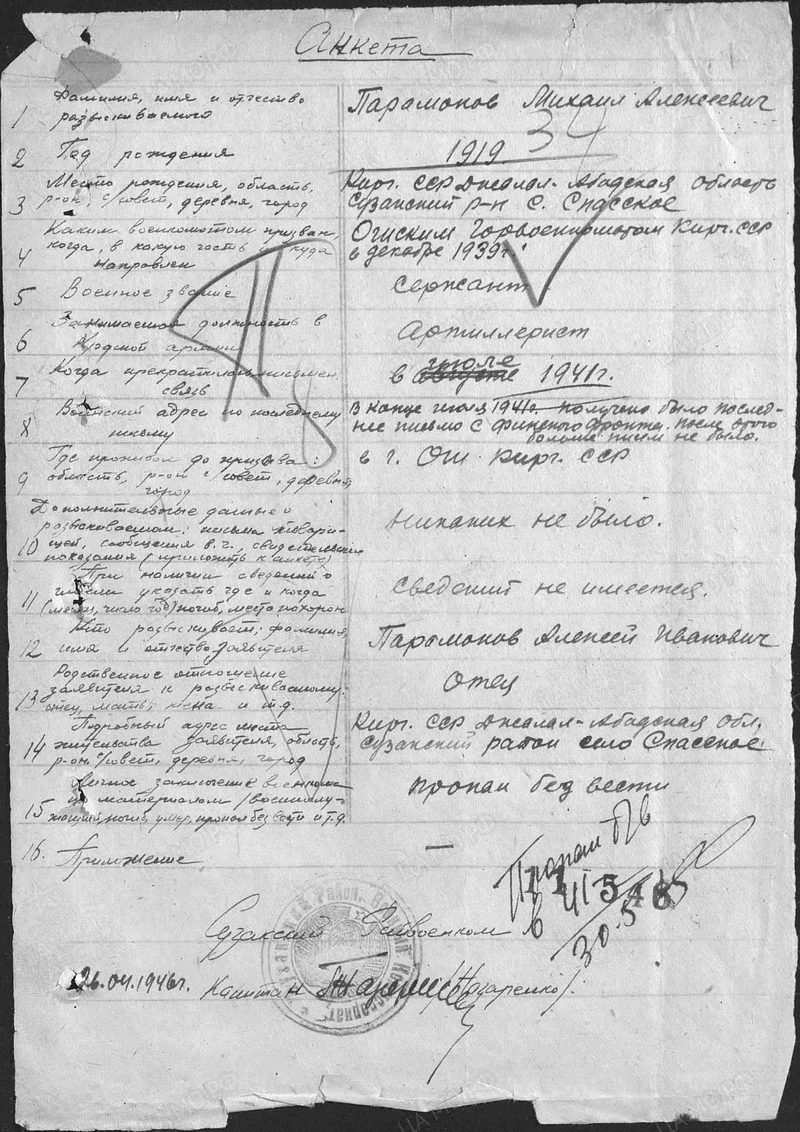 Анкета
1 Фамилия, имя и отчество
разыскиваемого
Парамонов Михаил Алексеевич
34
2 Год рождения
1919
3 Место рождения, область,
р-он, с/совет, деревня, город
Кирг. ССР Джалал-Абадская область
Сузакский р-н с. Спасское
4 Каким военкоматом призван,
когда, в какую часть и куда
направлен
Ошским Горвоенкоматом Кирг. ССР
в декабре 1939 г.
5 Военное звание
сержант
6 Занимаемая должность в
Красной армии
Артиллерист
7 Когда прекратилась письмен.
связь
июле
в августе 1941 г.
8 Воинский адрес по последнему
письму
В конце июля 1941 г. получено было послед-
нее письмо с финского фронта. после этого
больше писем не было.
9 Где проживал до призыва:
область, р-он с/совет, деревня,
город
в г. Ош Кирг. ССР
10 Дополнительные данные о
разыскиваемом: письма товари-
щей, сообщения в.ч., свидетельские
показания (приложить к анкете)
Никаких не было.
11 При наличии сведений о
гибели указать где и когда
(месяц, число год) погиб, место похорон
Сведений не имеется.
12 Кто разыскивает: фамилия,
имя и отчество заявителя
Парамонов Алексей Иванович
13 Родственное отношение
заявителя к разыскиваемому:
отец, мать, жена и т.д.
Отец
14 Подробный адрес места
жительства заявителя, область,
р-он. с/совет, деревня, город
Кирг. ССР Джалал-Абадская обл.
Сузакский район село Спасское
15 Личное заключение военкома
по материалам /военнослу-
жащий погиб, умер, пропал без вести и т.д.
пропал без вести
16. Приложение
—
Пропал б/в
в
30.5
Сузакский Райвоенком
26.04.1946 г. Капитан (Назаренко).